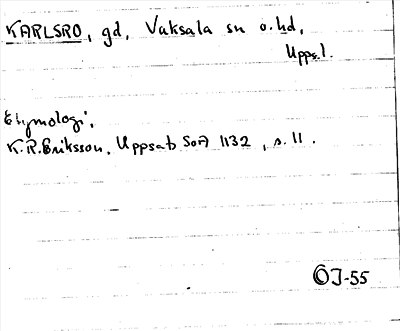 KARLSRO, gd, Vaksala sn o. hd,
Uppsl.
Etymologi,
K.R. Eriksson, Uppsats SOA 1132, s. 11.
OJ-55